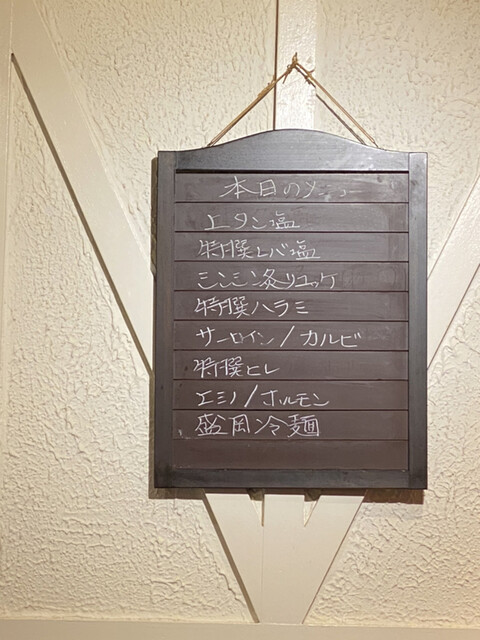 本日のメニュー
上タン塩
特撰レバ塩
シンシン炙りユッケ
特撰ハラミ
サーロイン/カルビ
特撰ヒレ
上ミノ/ホルモン
盛岡冷麺